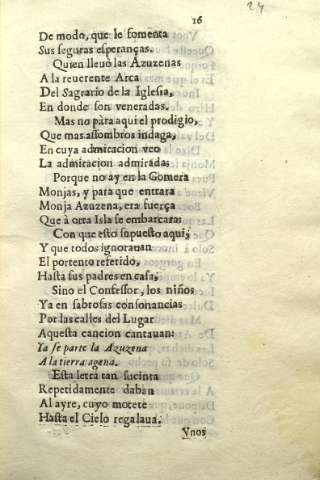 24
16
De modo, que le fomenta
Sus seguras esperanças.
Quien lleuò las Azuzenas
A la reuerente Arca
Del Sagrario de la Iglesia,
En donde son veneradas.
Mas no pàra aqui el prodigio,
Que mas assombros indaga,
En cuya admiracion veo
La admiracion admirada:
Porque no ay en la Gomera
Monjas, y para que entrara
Monja Azuzena, era fuerça
Que à otra Isla se embarcara:
Con que esto supuesto aqui,
Y que todos ignorauan
El portento referido,
Hasta sus padres en casa,
Sino el Confessor, los niños
Ya en sabrosas consonancias
Por las calles del Lugar
Aquesta cancion cantauan:
Ya se parte la Azuzena
A la tierra agena.
Esta letra tan sucinta
Repetidamente daban
Al ayre, cuyo motete
Hasta el Cielo regalaua;
Vnos